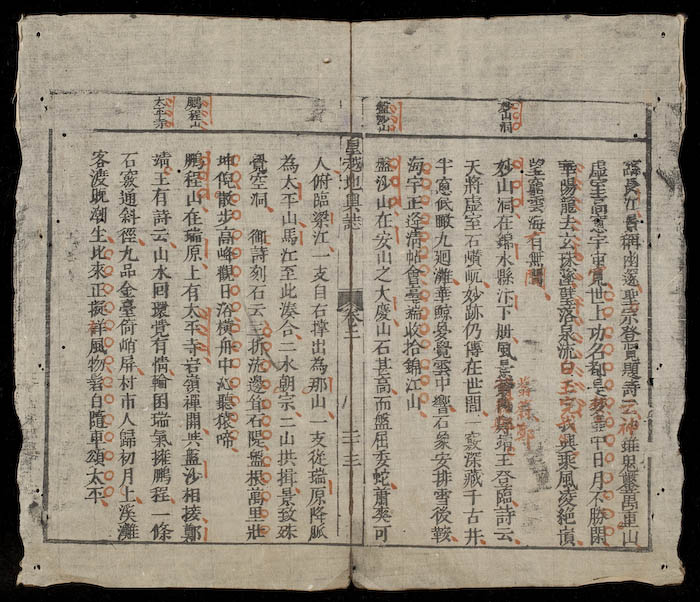 妙山洞
長江 稱幽邃聖宗登覽題詩云神錐鬼鑿萬重山
虛室高窓宇宙寬世上功名都是夢壺中日月不勝閑
華陽龍去玄珠墜碧落泉流白玉寒我興乘風凌絕頂
望窮雲海有無間
妙山洞在錦水縣江下册風景 靖王登臨詩云
天將虛室石嶙峋妙跡仍傳在世間一竅深藏千古井
半窓低瞰九迴灘華鯨 覺雲中響石象安排雪後鞍
海宇正逢清帖會臺端收拾錦江山
盤沙山
盤沙山在安山之大慶山石甚高而盤屈委蛇蕭爽可
皇越地輿誌 卷之 二十三
人俯臨梁江一支自右撑出為那山一支從瑞原降脈
為太平山馬江至此湊合二水朝宗二山拱揖景致殊
覺空洞 御詩刻石云三折流邊 石隄盤根萬里壯
坤倪散步高峰觀日浴橫舟中沚聽猿啼
鵬程山
鵬程山在瑞原上有太平寺岩嶺禪開共盤沙相接鄭
太平寺
靖王有詩云山水回環覺有情輪囷瑞氣擁鵬程一條
石竅通斜徑九品金臺倚峭屏村市人歸初月上溪灘
客渡晚潮生比來正擬 風物春自隨車頌太平